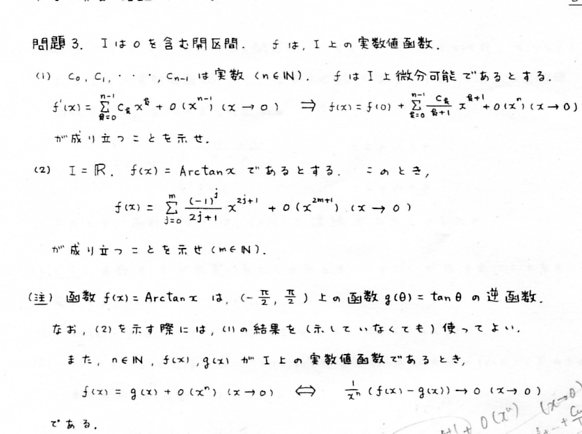 問題3. Iは0を含む開区間. fは, I上の実数値函数.
(1) C₀, C₁, ・・・, Cₙ₋₁ は実数 (n∈ℕ). fはI上微分可能であるとする.
f'(x) = Σ_{k=0}^{n-1} C_k x^k + o(x^{n-1}) (x→0) ⇒ f(x) = f(0) + Σ_{k=0}^{n-1} \frac{C_k}{k+1} x^{k+1} + o(x^n) (x→0)
が成り立つことを示せ.
(2) I=ℝ. f(x)= Arctan x であるとする. このとき,
f(x) = Σ_{j=0}^{m} \frac{(-1)^j}{2j+1} x^{2j+1} + o(x^{2m+1}) (x→0)
が成り立つことを示せ (m∈ℕ).
(注) 函数 f(x)= Arctan x は, (-\frac{π}{2}, \frac{π}{2}) 上の函数 g(θ)= tanθ の逆函数.
なお, (2)を示す際には, (1)の結果を (示していなくても) 使ってよい.
また, n∈ℕ, f(x), g(x) がI上の実数値函数であるとき,
f(x) = g(x) + o(x^n) (x→0) ⇔ \frac{1}{x^n} (f(x)-g(x)) → 0 (x→0)
である.
+ o(x^n) (x→0)